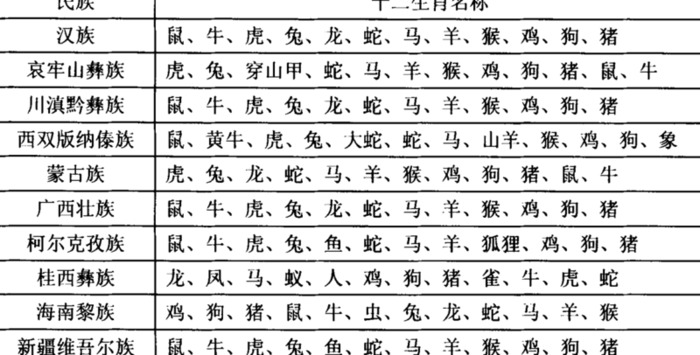 民族 十二生肖名称
汉族 鼠、牛、虎、兔、龙、蛇、马、羊、猴、鸡、狗、猪
哀牢山彝族 虎、兔、穿山甲、蛇、马、羊、猴、鸡、狗、猪、鼠、牛
川滇黔彝族 鼠、牛、虎、兔、龙、蛇、马、羊、猴、鸡、狗、猪
西双版纳傣族 鼠、黄牛、虎、兔、大蛇、蛇、马、山羊、猴、鸡、狗、象
蒙古族 虎、兔、龙、蛇、马、羊、猴、鸡、狗、猪、鼠、牛
广西壮族 鼠、牛、虎、兔、龙、蛇、马、羊、猴、鸡、狗、猪
柯尔克孜族 鼠、牛、虎、兔、鱼、蛇、马、羊、狐狸、鸡、狗、猪
桂西彝族 龙、凤、马、蚁、人、鸡、狗、猪、雀、牛、虎、蛇
海南黎族 鸡、狗、猪、鼠、牛、虫、兔、龙、蛇、马、羊、猴
新疆维吾尔族 鼠、牛、虎、兔、鱼、蛇、马、羊、猴、鸡、狗、猪